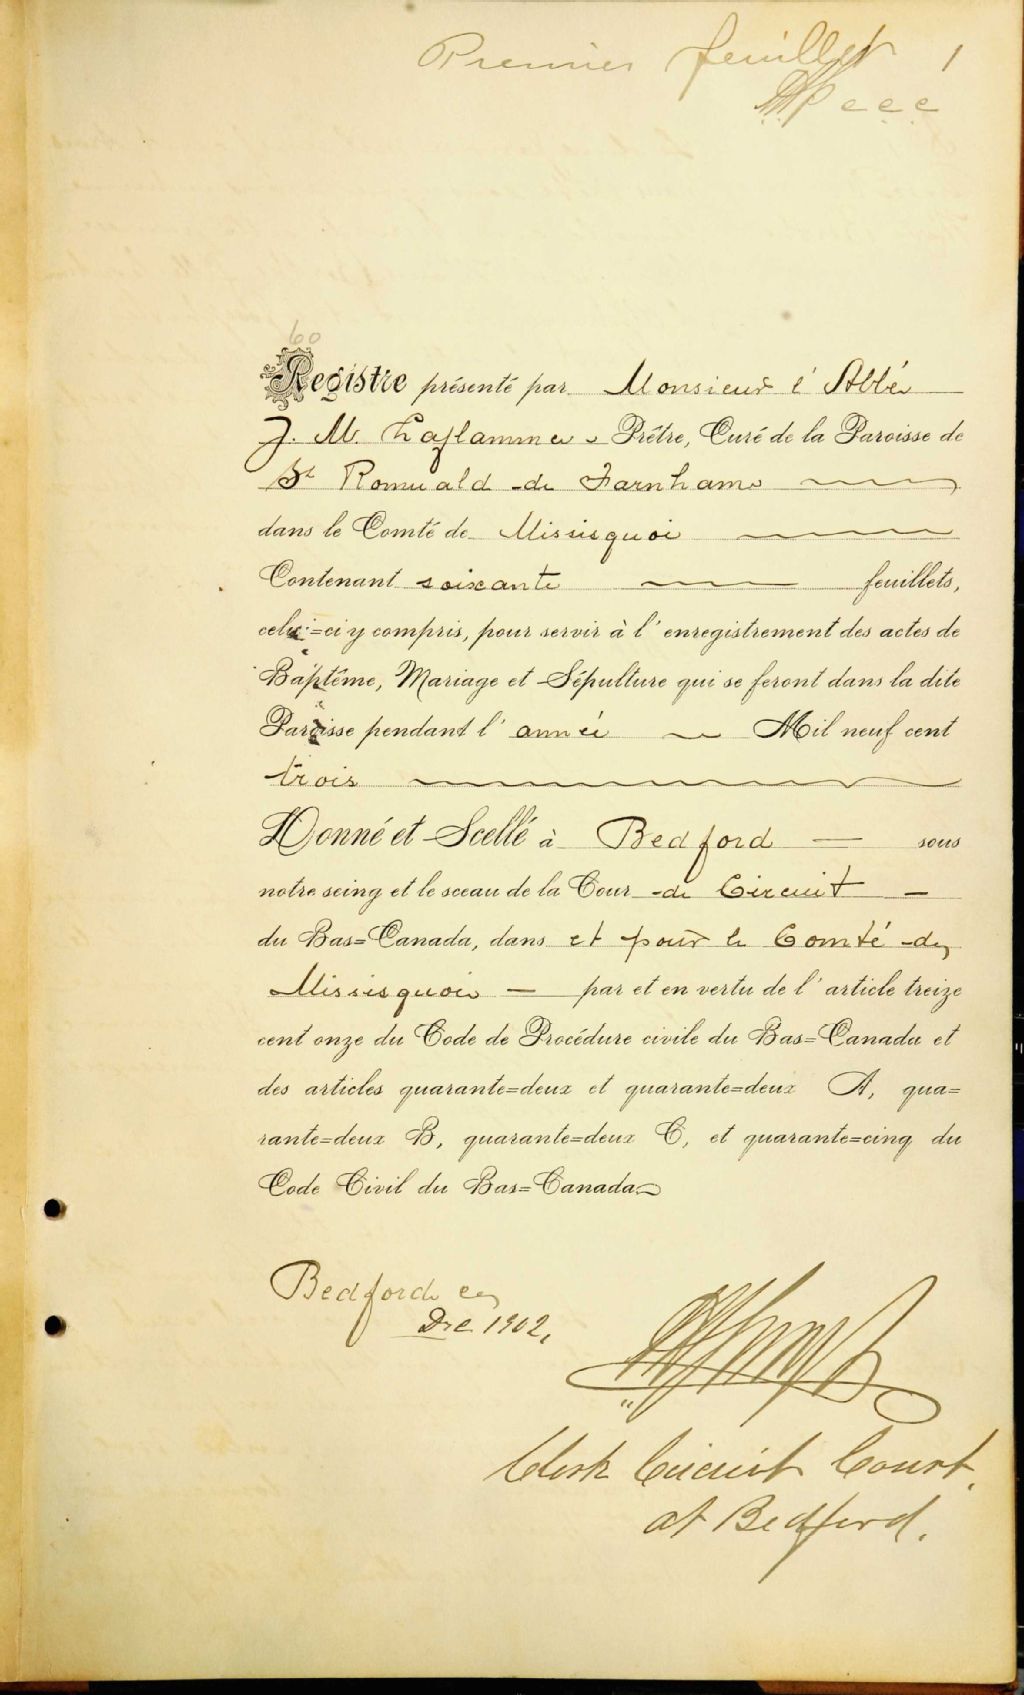 Premier feuillet 1
c c c
60
Registre présenté par Monsieur l'Abbé
J. M. Laflamme Prêtre, Curé de la Paroisse de
St Romuald de Farnham
dans le Comté de Missisquoi
Contenant soixante feuillets,
celui=ci y compris, pour servir à l'enregistrement des actes de
Baptême, Mariage et Sépulture qui se feront dans la dite
Paroisse pendant l'année Mil neuf cent
trois
Donné et Scellé à Bedford — sous
notre seing et le sceau de la Cour de Circuit —
du Bas=Canada, dans et pour le Comté de
Missisquoi — par et en vertu de l'article treize
cent onze du Code de Procédure civile du Bas=Canada et
des articles quarante=deux et quarante=deux A, qua=
rante=deux B, quarante=deux C, et quarante=cinq du
Code Civil du Bas=Canada
Bedford
Dec 1902,
Clerk Circuit Court,
at Bedford.